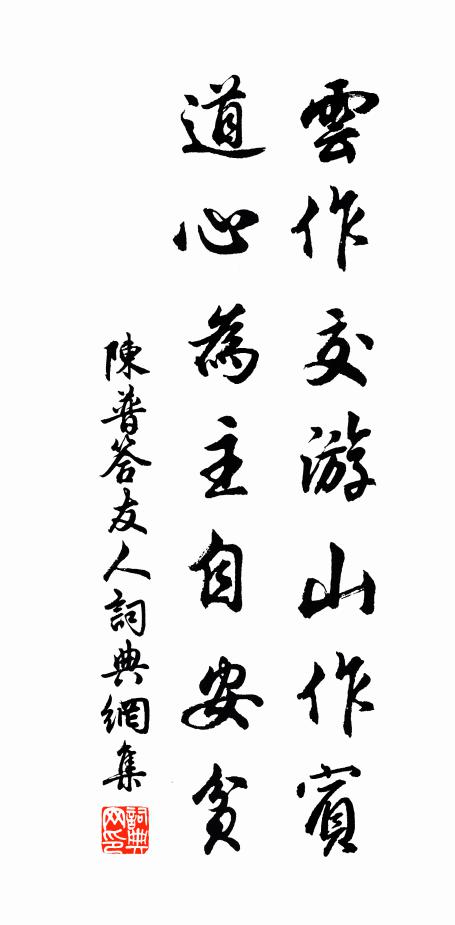 雲作交游山作賓
道心為主自安貧
陳普答友人詞典網集
詞典
网印